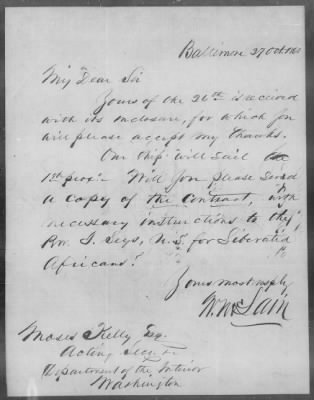 Baltimore 27 Oct. 1860
My Dear Sir
Yours of the 26th is received
with its enclosure, for which you
will please accept my thanks.
Our Ship will sail
1st prox. Will you please send
a copy of the Contract, with
necessary instructions to the
Rev. J. Seys, U.S. for Liberated
Africans?
Yours most resply
W. McLain
Moses Kelly, Esq.
Acting Secr
Department of the Interior
Washington